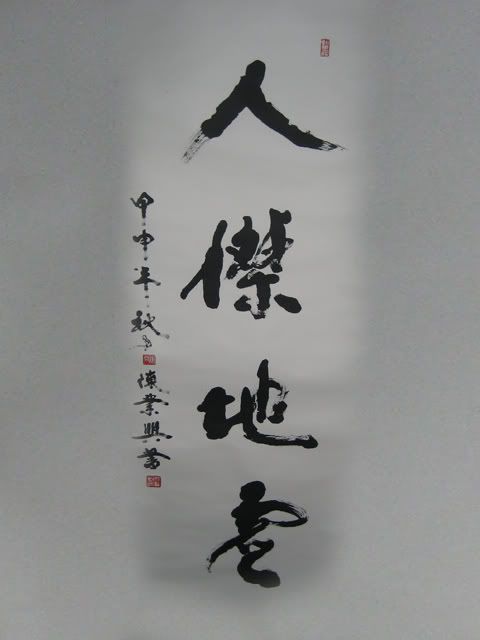 人傑地靈
甲申年秋月
業興書